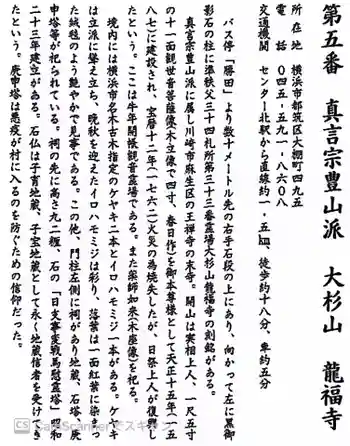 第五番　真言宗豊山派　大杉山　龍福寺
所在地　横浜市都筑区大棚町四九五
電話　〇四五-五九一-八六〇八
交通機関　センター北駅から直線約一・五㎞、徒歩約十八分、車約五分
バス停「勝田」より数十メートル先の右手石段の上にあり、向かって左に黒御
影石の柱に準秩父三十四札所第三十三番霊場大杉山龍福寺の刻銘がある。
真言宗豊山派に属し川崎市麻生区の王禅寺の末寺。開山は実相上人、一尺五寸
の十一面観世音菩薩像（木立像で四寸、春日作）を御本尊様として天正十五年（一五
八七）に建設され、宝暦十二年（一七六二）火災の為焼失したが、日祭上人が復興し
たという。ここは牛年開帳観音霊場である。また薬師如来（木座像）を祀る。
境内には横浜市名木古木指定のケヤキ二本とイロハモミジ一本がある。ケヤキ
は立派に聳え立ち、晩秋を迎えたイロハモミジは彩り、落葉は一面紅葉に染まっ
た絨毯のよう艶やかで見事である。この他、門柱左側に祠があり地蔵、石塔、庚
申塔等が祀られている。祠の先に高さ九二糎、石の「日支事変戦馬慰霊塔」昭和
二十三年建立がある。石仏は子育地蔵、子宝地蔵として永く地蔵信者を受けき
たという。庚申塔は悪疫が村に入るのを防ぐための信仰だった。
CS CamScanner でスキャン